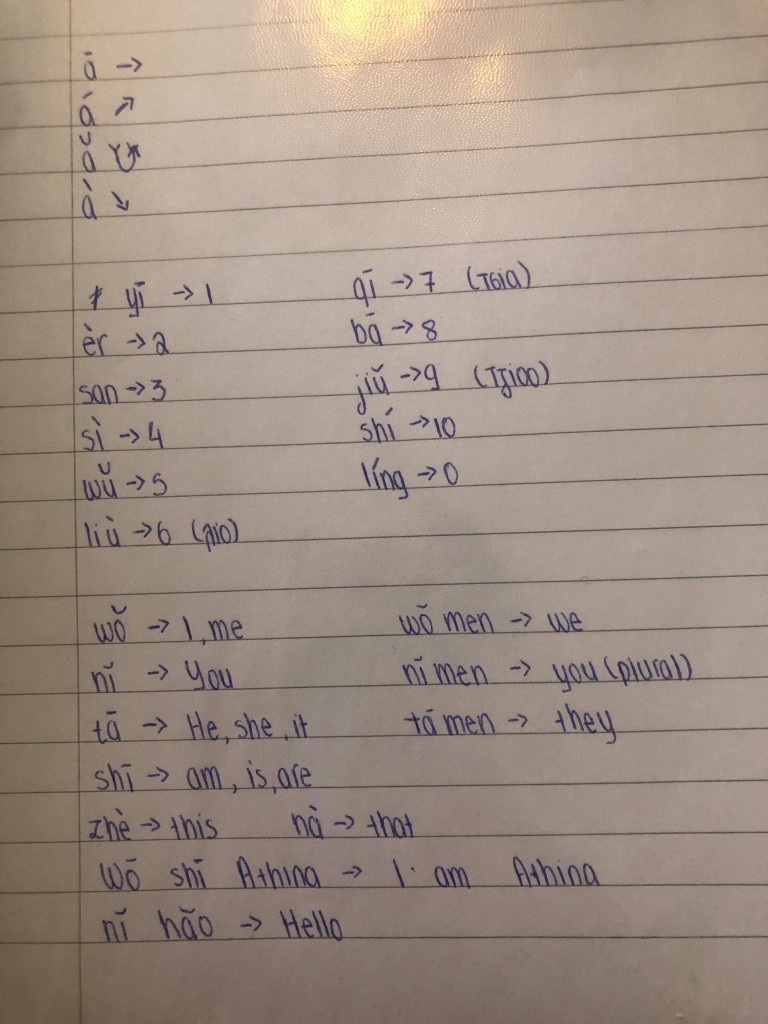 ā →
á ↗
ǎ
à ↘
yī → 1
èr → 2
san → 3
sì → 4
wǔ → 5
liù → 6 (λιο)
qī → 7 (τσια)
bā → 8
jiǔ → 9 (τζιοο)
shí → 10
líng → 0
wǒ → I, me
nǐ → You
tā → He, she, it
shī → am, is, are
zhè → this nà → that
wǒ men → we
nǐ men → you (plural)
tā men → they
wǒ shī Athina → I am Athina
nǐ hǎo → Hello